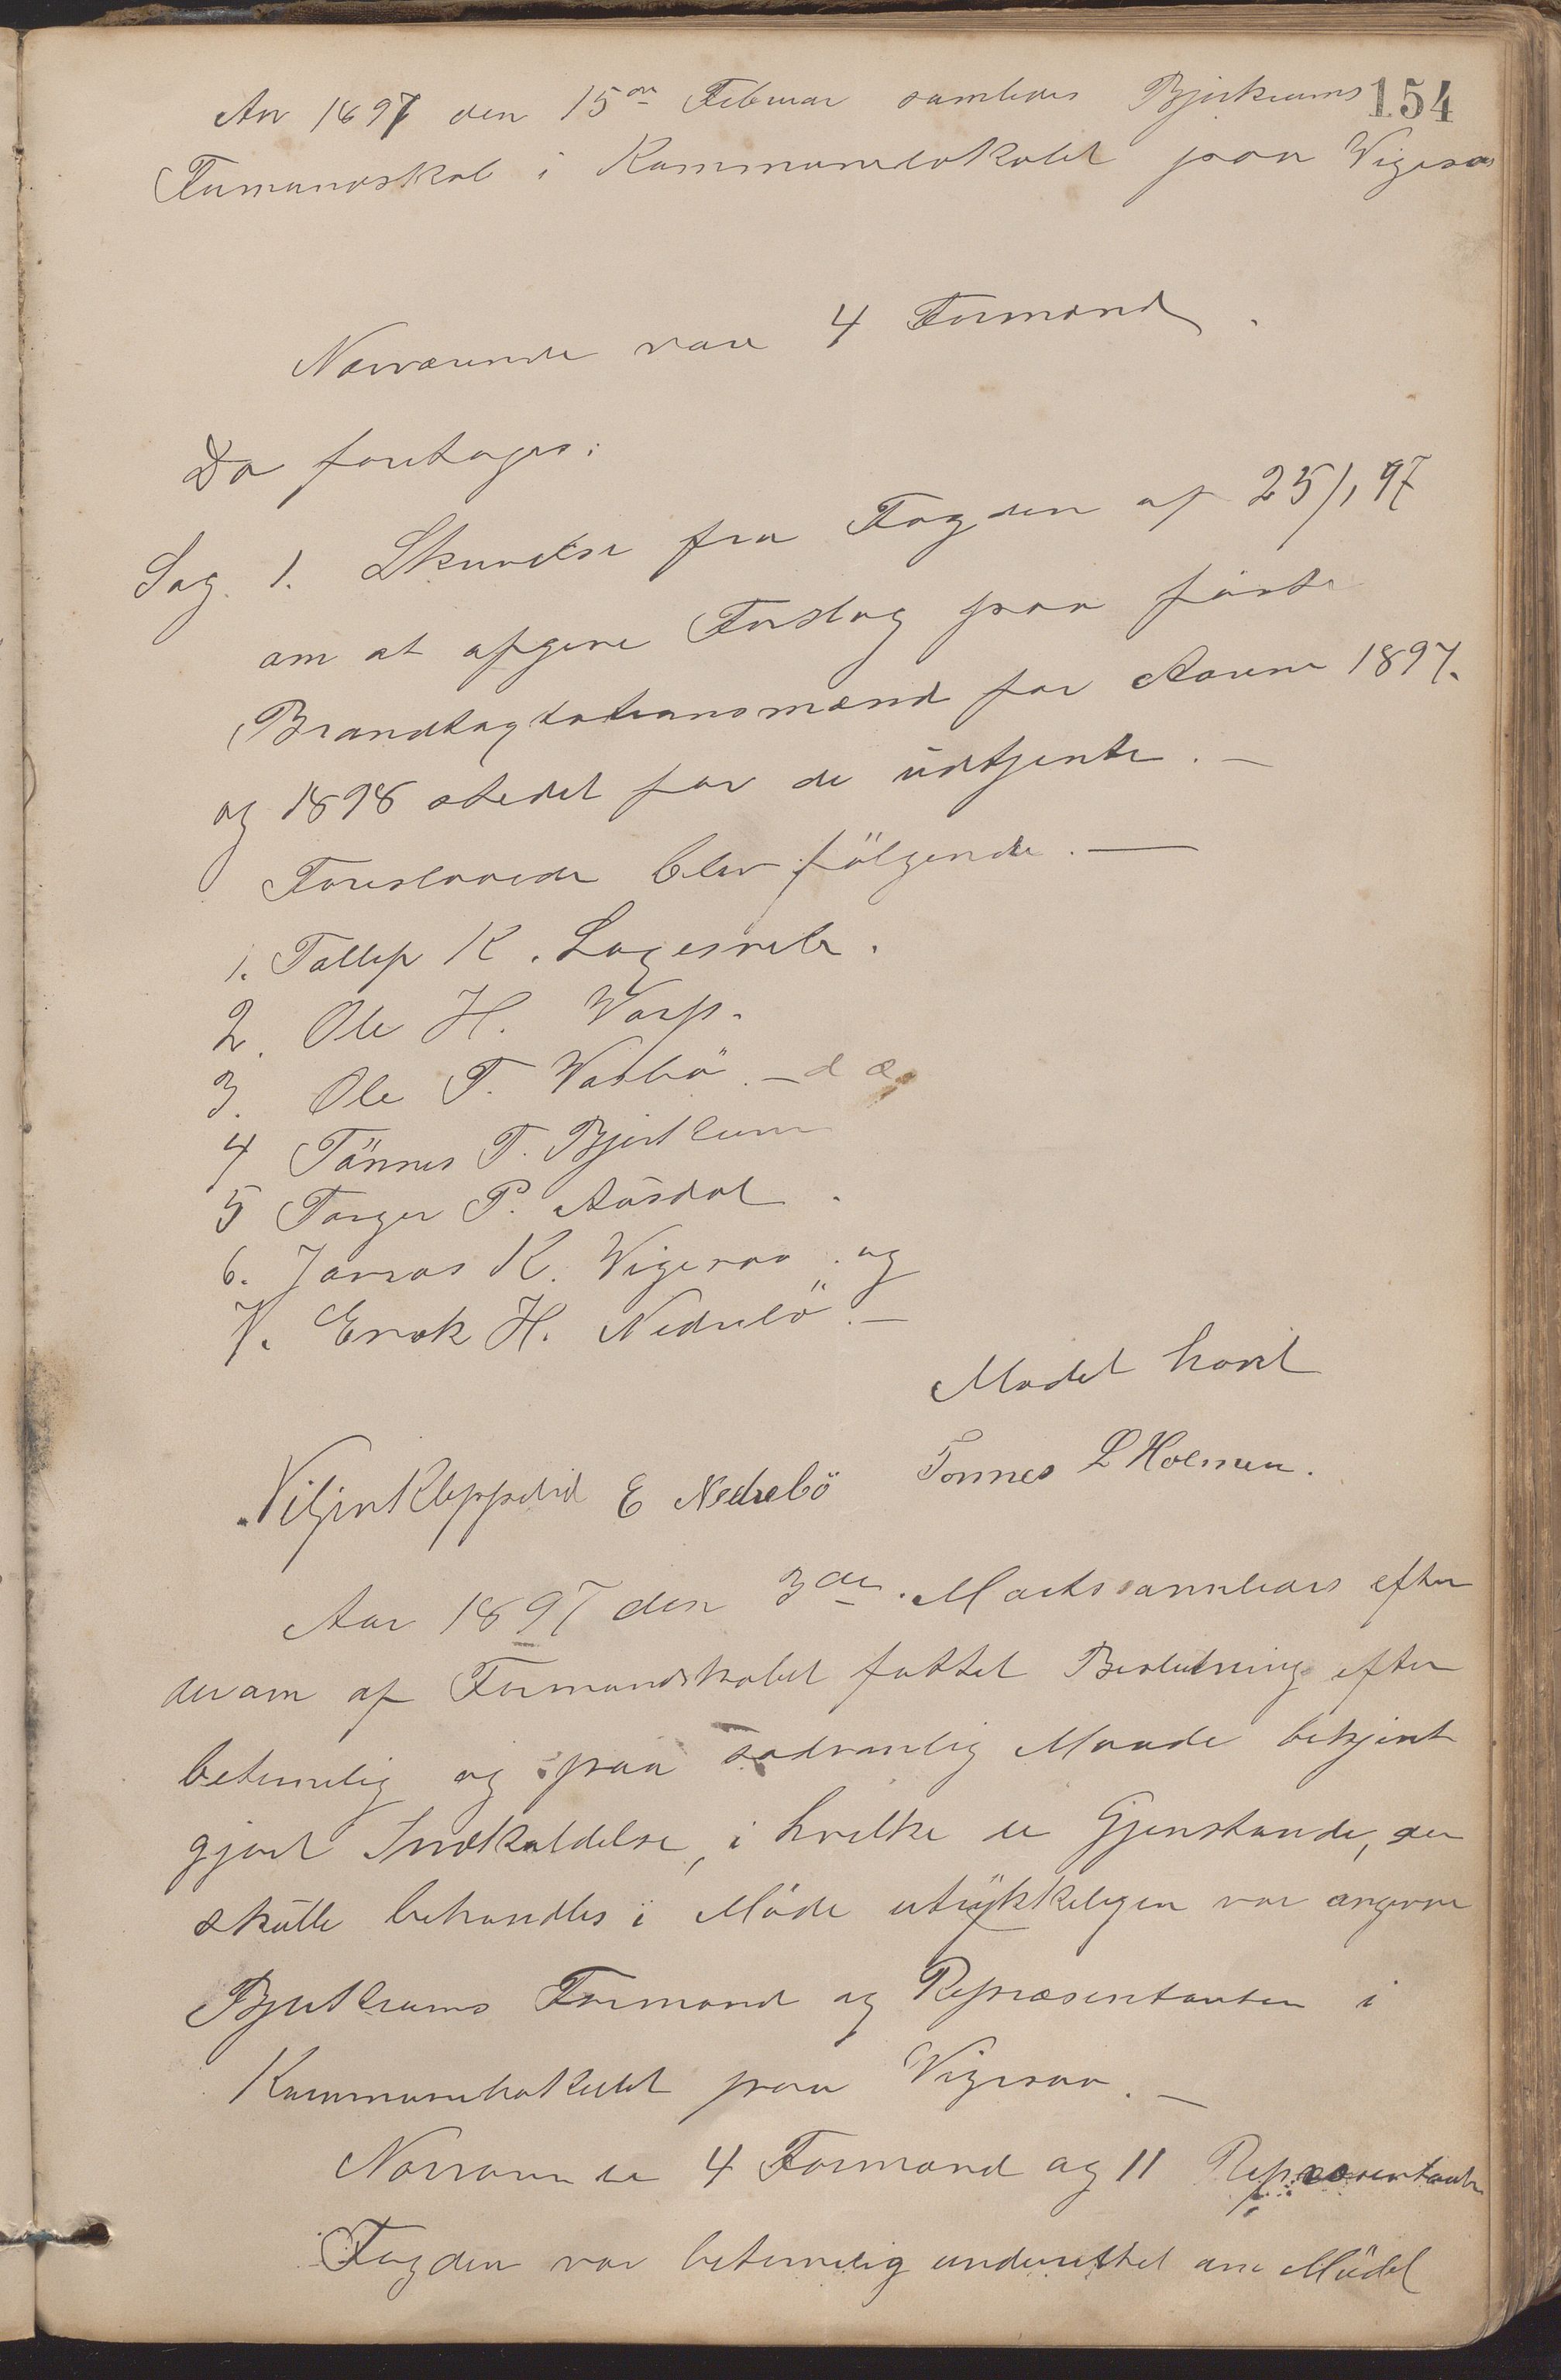 154
Aar 1897 den 15de Februar samledes Bjerkrums
Formandskab i Kommunelokalet paa Vigesaa
Nærværende vare 4 Formænd.
Da foretoges:
Sag. 1. Skrivelse fra Fogden af 25/1 97
om at afgive Forslag paa faste
Brandtagtationsmænd for Aarene 1897.
og 1898 stedet for de udtjente. —
Foreslaaede blev følgende. —
1. Tollef K. Lagesvele.
2. Ole H. Varp.
3. Ole T. Vasbö. —
4 Tönnes T. Bjerkrum
5 Torger P. Aasdal.
6. Jonas K. Vigesaa. og
7. Enok H. Nedrebö. —
Mødet hævet
Tönnes L Holmen.
E Nedrebö
Aar 1897 den 3de Marts samledes efter
derom af Formandskabet fattet Beslutning efter
betimelig og paa sedvanlig Maade bekjent
gjort Indkaldelse, i hvilke de Gjenstande, der
skulle behandles i Möde utrykkeligen var angivne
Bjerkrums Formænd og Repræsentanter i
Kommunelokalet paa Vigesaa. —
Nærværende 4 Formænd og 11 Repræsentanter
Fogden var betimelig underrettet om Mödet